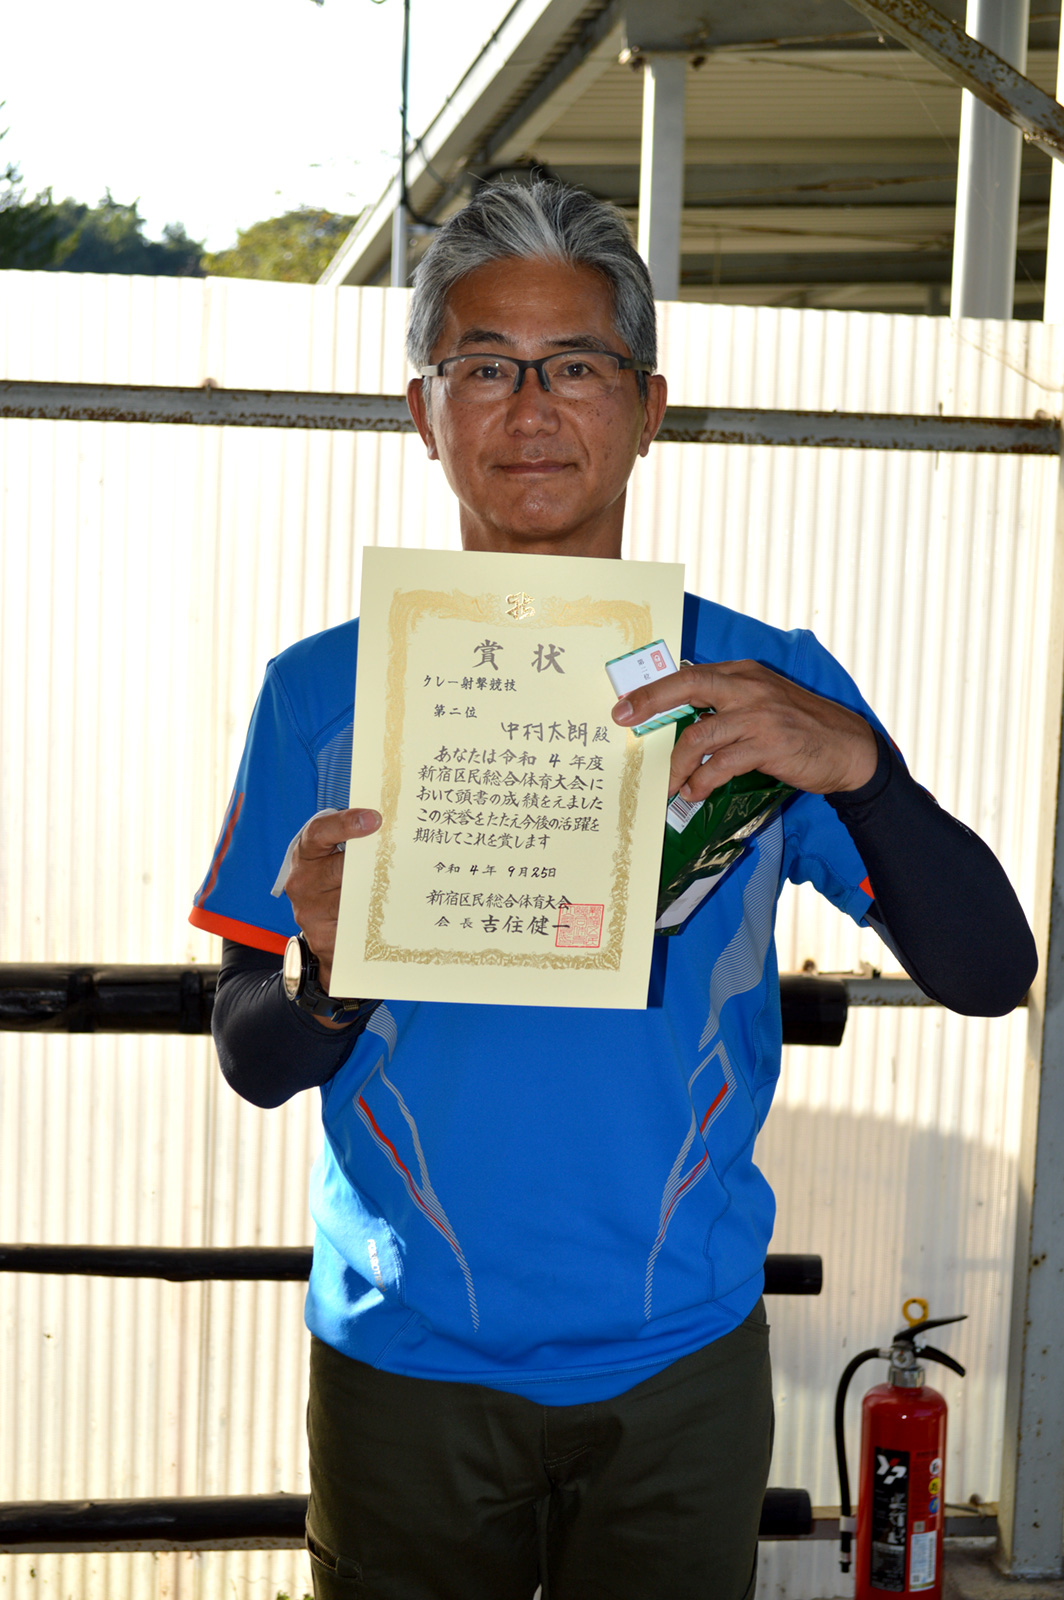 賞状
クレー射撃競技
第二位
中村太朗殿
あなたは令和4年度
新宿区民総合体育大会に
おいて頭書の成績をえました
この栄誉をたたえ今後の活躍を
期待してこれを賞します
令和4年9月25日
新宿区民総合体育大会
会長 吉住健一
第二位